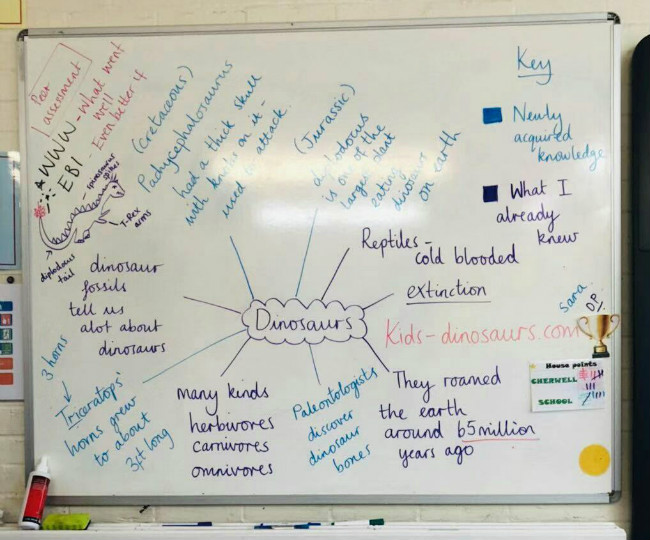 Peer
assessment
WWW - What went
well
EBI - Even better if
spinosaurus
spikes
T-Rex
arms
diplodocus
tail
(Cretaceous)
Pachycephalosaurus
had a thick skull
with knobs on it -
used to attack.
(Jurassic)
diplodocus
is one of the
largest plant
eating
dinosaur
on earth
Key
Newly
acquired
knowledge
What I
already
knew
Reptiles -
cold blooded
extinction
Kids-dinosaurs.com
Sara
Dinosaurs
dinosaur
fossils
tell us
alot about
dinosaurs
3 horns
Triceratops'
horns grew
to about
3ft long
Many kinds
herbivores
carnivores
omnivores
Paleontologists
discover
dinosaur
bones
They roamed
the earth
around 65million
years ago
House points
CHERWELL
SCHOOL